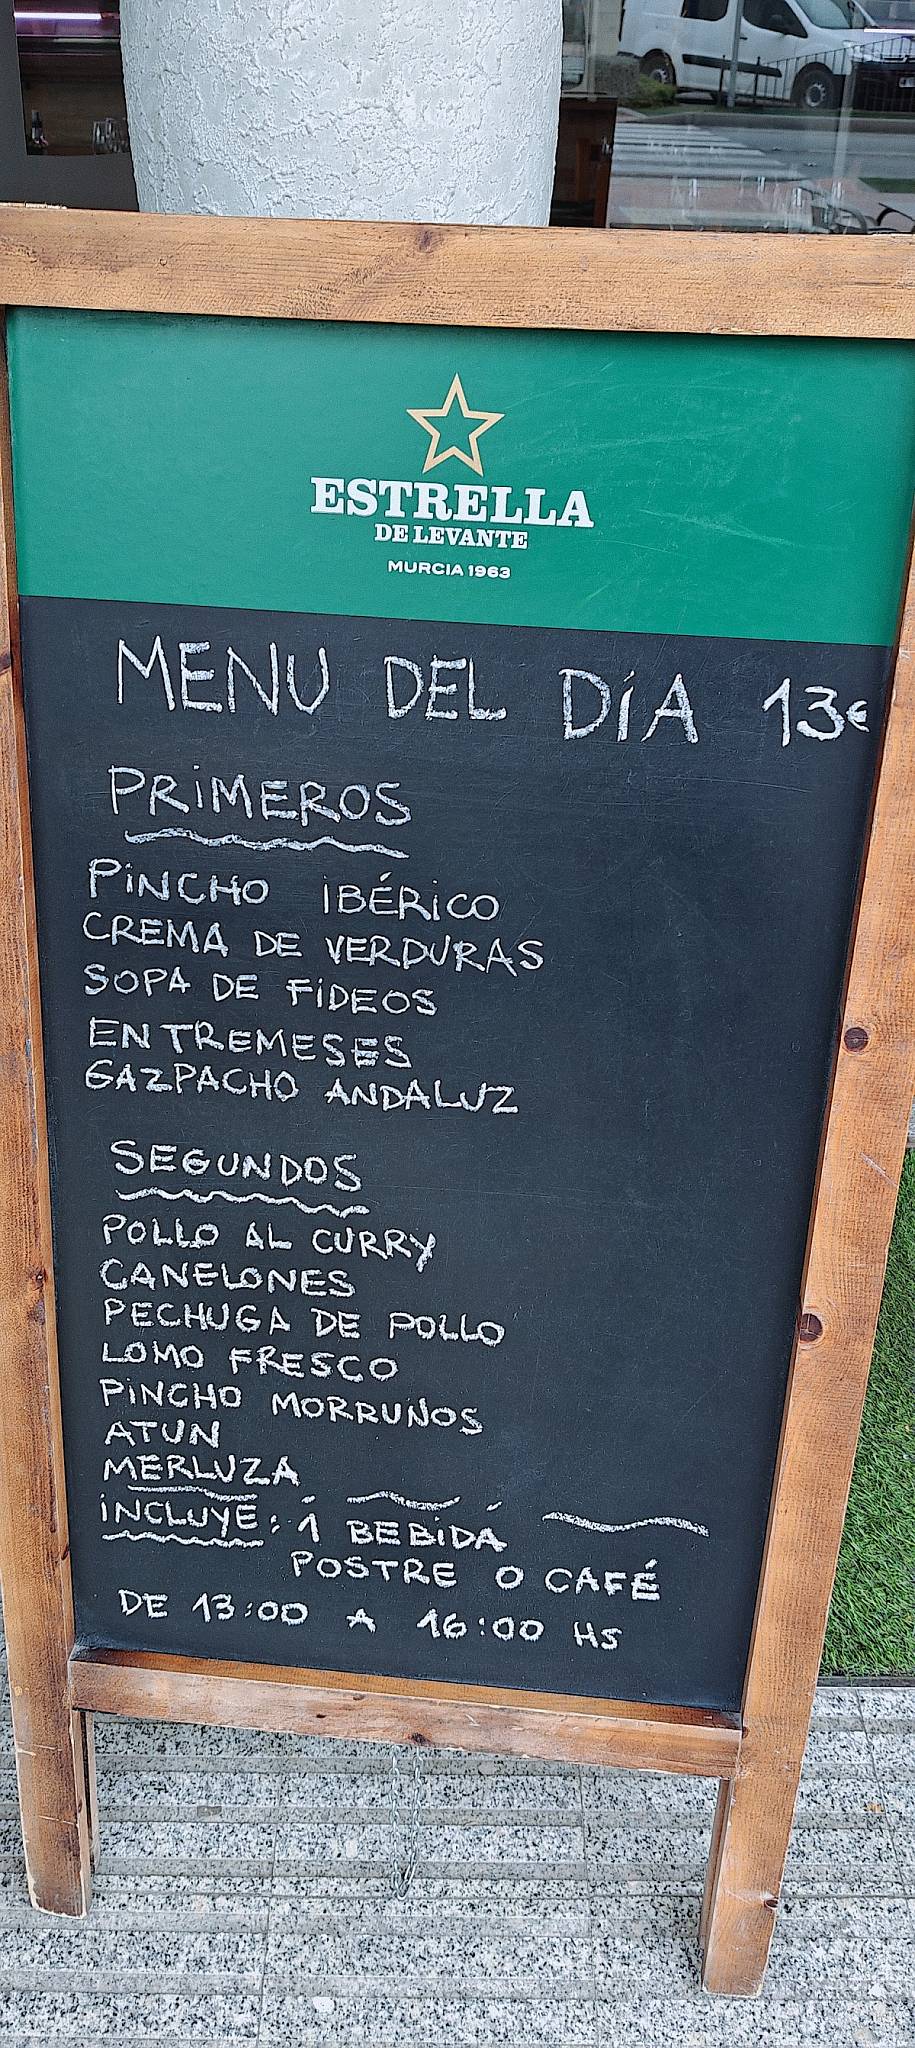 ESTRELLA
DE LEVANTE
MURCIA 1963
MENU DEL DíA 13€
PRiMEROS
PiNCHO iBÉRiCO
CREMA DE VERDURAS
SOPA DE FiDEOS
ENTREMESES
GAZPACHO ANDALUZ
SEGUNDOS
POLLO AL CURRY
CANELONES
PECHUGA DE POLLO
LOMO FRESCO
PiNCHO MORRUNOS
ATUN
MERLUZA
iNCLUYE: 1 BEBiDA
POSTRE O CAFÉ
DE 13:00 A 16:00 HS